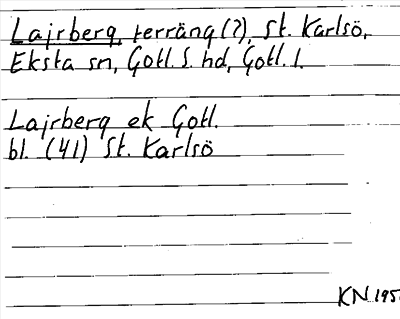 Lajrberg, terräng (?), St. Karlsö,
Eksta sn, Gotl. S. hd, Gotl. l.
Lajrberg ek Gotl.
bl. (41) St. Karlsö
KN